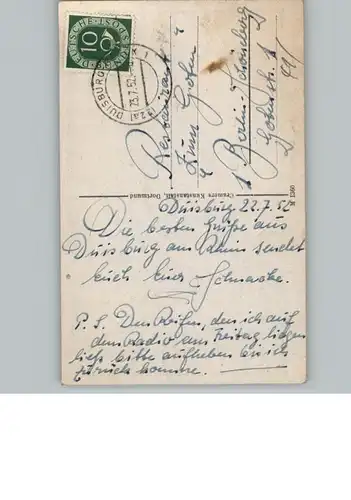 DEUTSCHE BUNDESPOST
10
DUISBURG
23.7.52
Restaurant
Zum Grafen
Berlin-Schöneberg
Cramers Kunstanstalt, Dortmund
Duisburg 22.7.52
Die besten Grüße aus
Duisburg am Rhein sendet
Euch Euer
P.S. Den Reifen, den ich auf
dem Radio am Freitag liegen
ließ bitte aufheben bis ich
zurück komme.